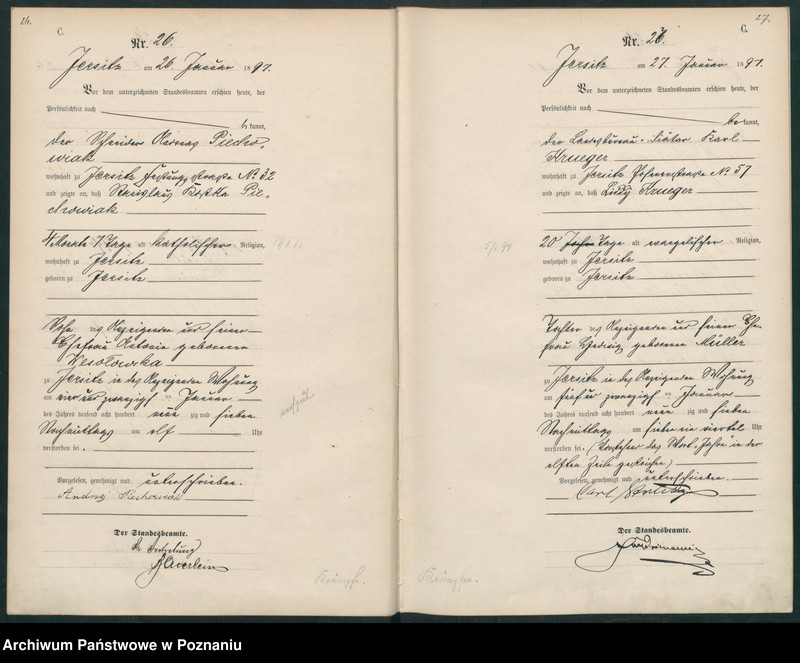 26.
C.
Nr. 26.
Jersitz am 26. Januar 1897.
Vor dem unterzeichneten Standesbeamten erschien heute, der
Persönlichkeit nach
bekannt,
der Schneider Andreas Piecho-
wiak
wohnhaft zu Jersitz Festungsstrasse No 32
und zeigte an, daß Stanislaus Kostka Pie-
chowiak
4 Monate 7 Tage alt katholischer Religion,
wohnhaft zu Jersitz
geboren zu Jersitz
Sohn des Anzeigenden und seiner
Ehefrau Antonie geborenen
Wesołowska
zu Jersitz in des Anzeigenden Wohnung
am vier und zwanzigsten Januar
des Jahres tausend acht hundert neunzig und sieben
Nachmittags um elf Uhr
verstorben sei.
Vorgelesen, genehmigt und unterschrieben.
Andrzej Piechowiak
Der Standesbeamte.
In Vertretung
Krämpfe.
27.
C.
Nr. 27.
Jersitz am 27. Januar 1897.
Vor dem unterzeichneten Standesbeamten erschien heute, der
Persönlichkeit nach
bekannt,
der Karl
Krueger
wohnhaft zu Jersitz No 57
und zeigte an, daß Lucy Krueger
5/1. 97
20 Jahre Tage alt evangelischer Religion,
wohnhaft zu Jersitz
geboren zu Jersitz
Tochter des Anzeigenden und seiner Ehe-
frau Hedwig geborenen Müller
zu Jersitz in des Anzeigenden Wohnung
am fünf und zwanzigsten Januar
des Jahres tausend acht hundert neunzig und sieben
Nachmittags um sieben ein viertel Uhr
verstorben sei. (Vorstehend das Wort "Jahre" in der
elften Zeile gestrichen)
Vorgelesen, genehmigt und unterschrieben.
Carl Krueger
Der Standesbeamte.
Krämpfe.
Archiwum Państwowe w Poznaniu